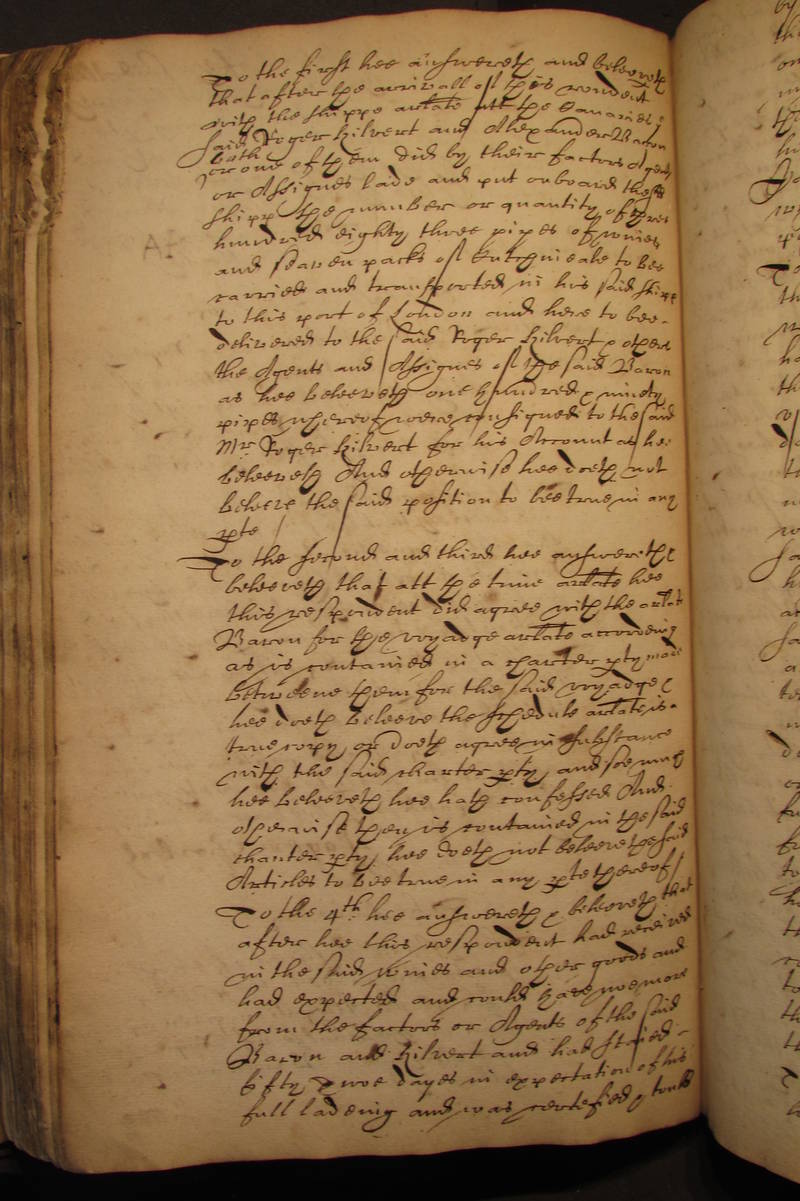 To the first hee answereth and beleeveth
that after the arrivall of this rendent
with the shippe arlate att the Canaries
said Roger Kilvert and Alexander Bacon
both
or one of them did by their factors Agents
or Assignes lade and put onboard the sd
shipp the number or quantity of three
hundred eighty three pipes of wines
and seaven packs of Cutchineale to bee
carried and transported in his said shipp
to this port of London and here to bee
delivered to the said Roger Kilvert & other
the Agents and Assignes of the said Bacon
as hee beleeveth one hundred & ninety
pipes whereof were consigned to the said
Mr Roger Kilvert for his Account as hee
beleeveth And otherwise hee doeth not
beleeve the said position to bee true in any
pte
To the second and third hee answereth &
beleeveth that att the time arlate hee
this respondent did agree with the arlate
Bacon for the voyadge arlate according
as is contained in a charter pty made
betweene them for the said voyadge &
hee doeth beleeve the schedule arlate is a
true copy or doeth agree in substance
with the said charter pty, and soe much
hee beleeveth hee hath confessed And
otherwise then is contained in the said
charter pty hee doeth not beleeve the said
Articles to bee true in any pte thereof
To the 4th hee answereth & beleeveth that
after hee this respondent had received
in the said wines and other goods and
had expected and could have noe more
from the factors or Agents of the said
Bacon and Kilvert and had staied
fifty two dayes in expectation of his
full ladeing and was certefied &